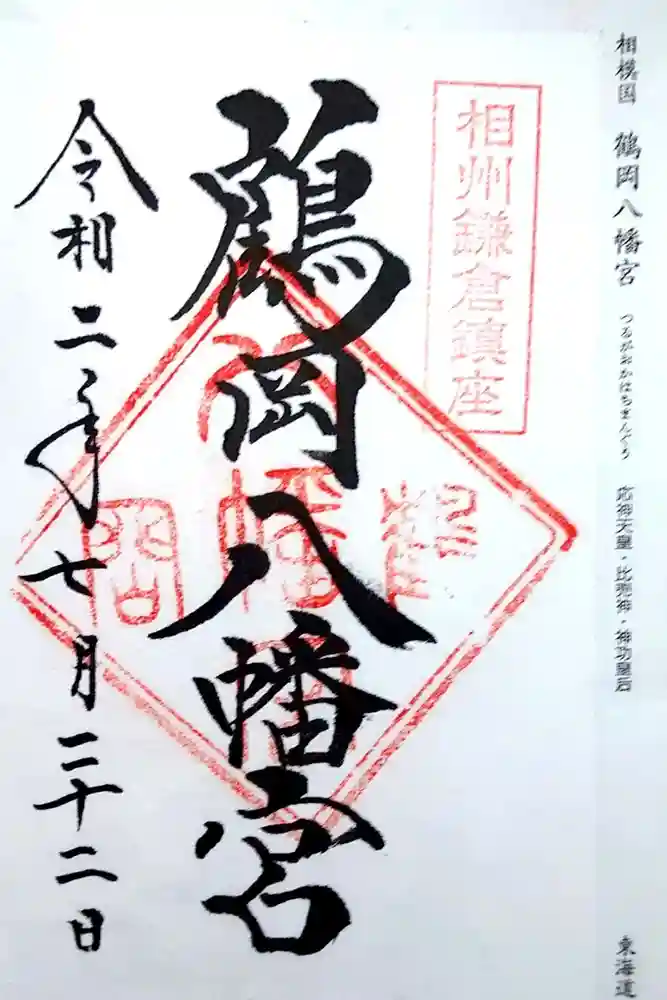 相模国 鶴岡八幡宮 つるがおかはちまんぐう 応神天皇・比売神・神功皇后 東海道
相州鎌倉鎮座
鶴岡八幡宮
鶴
八幡宮
岡
令和二年七月二十二日